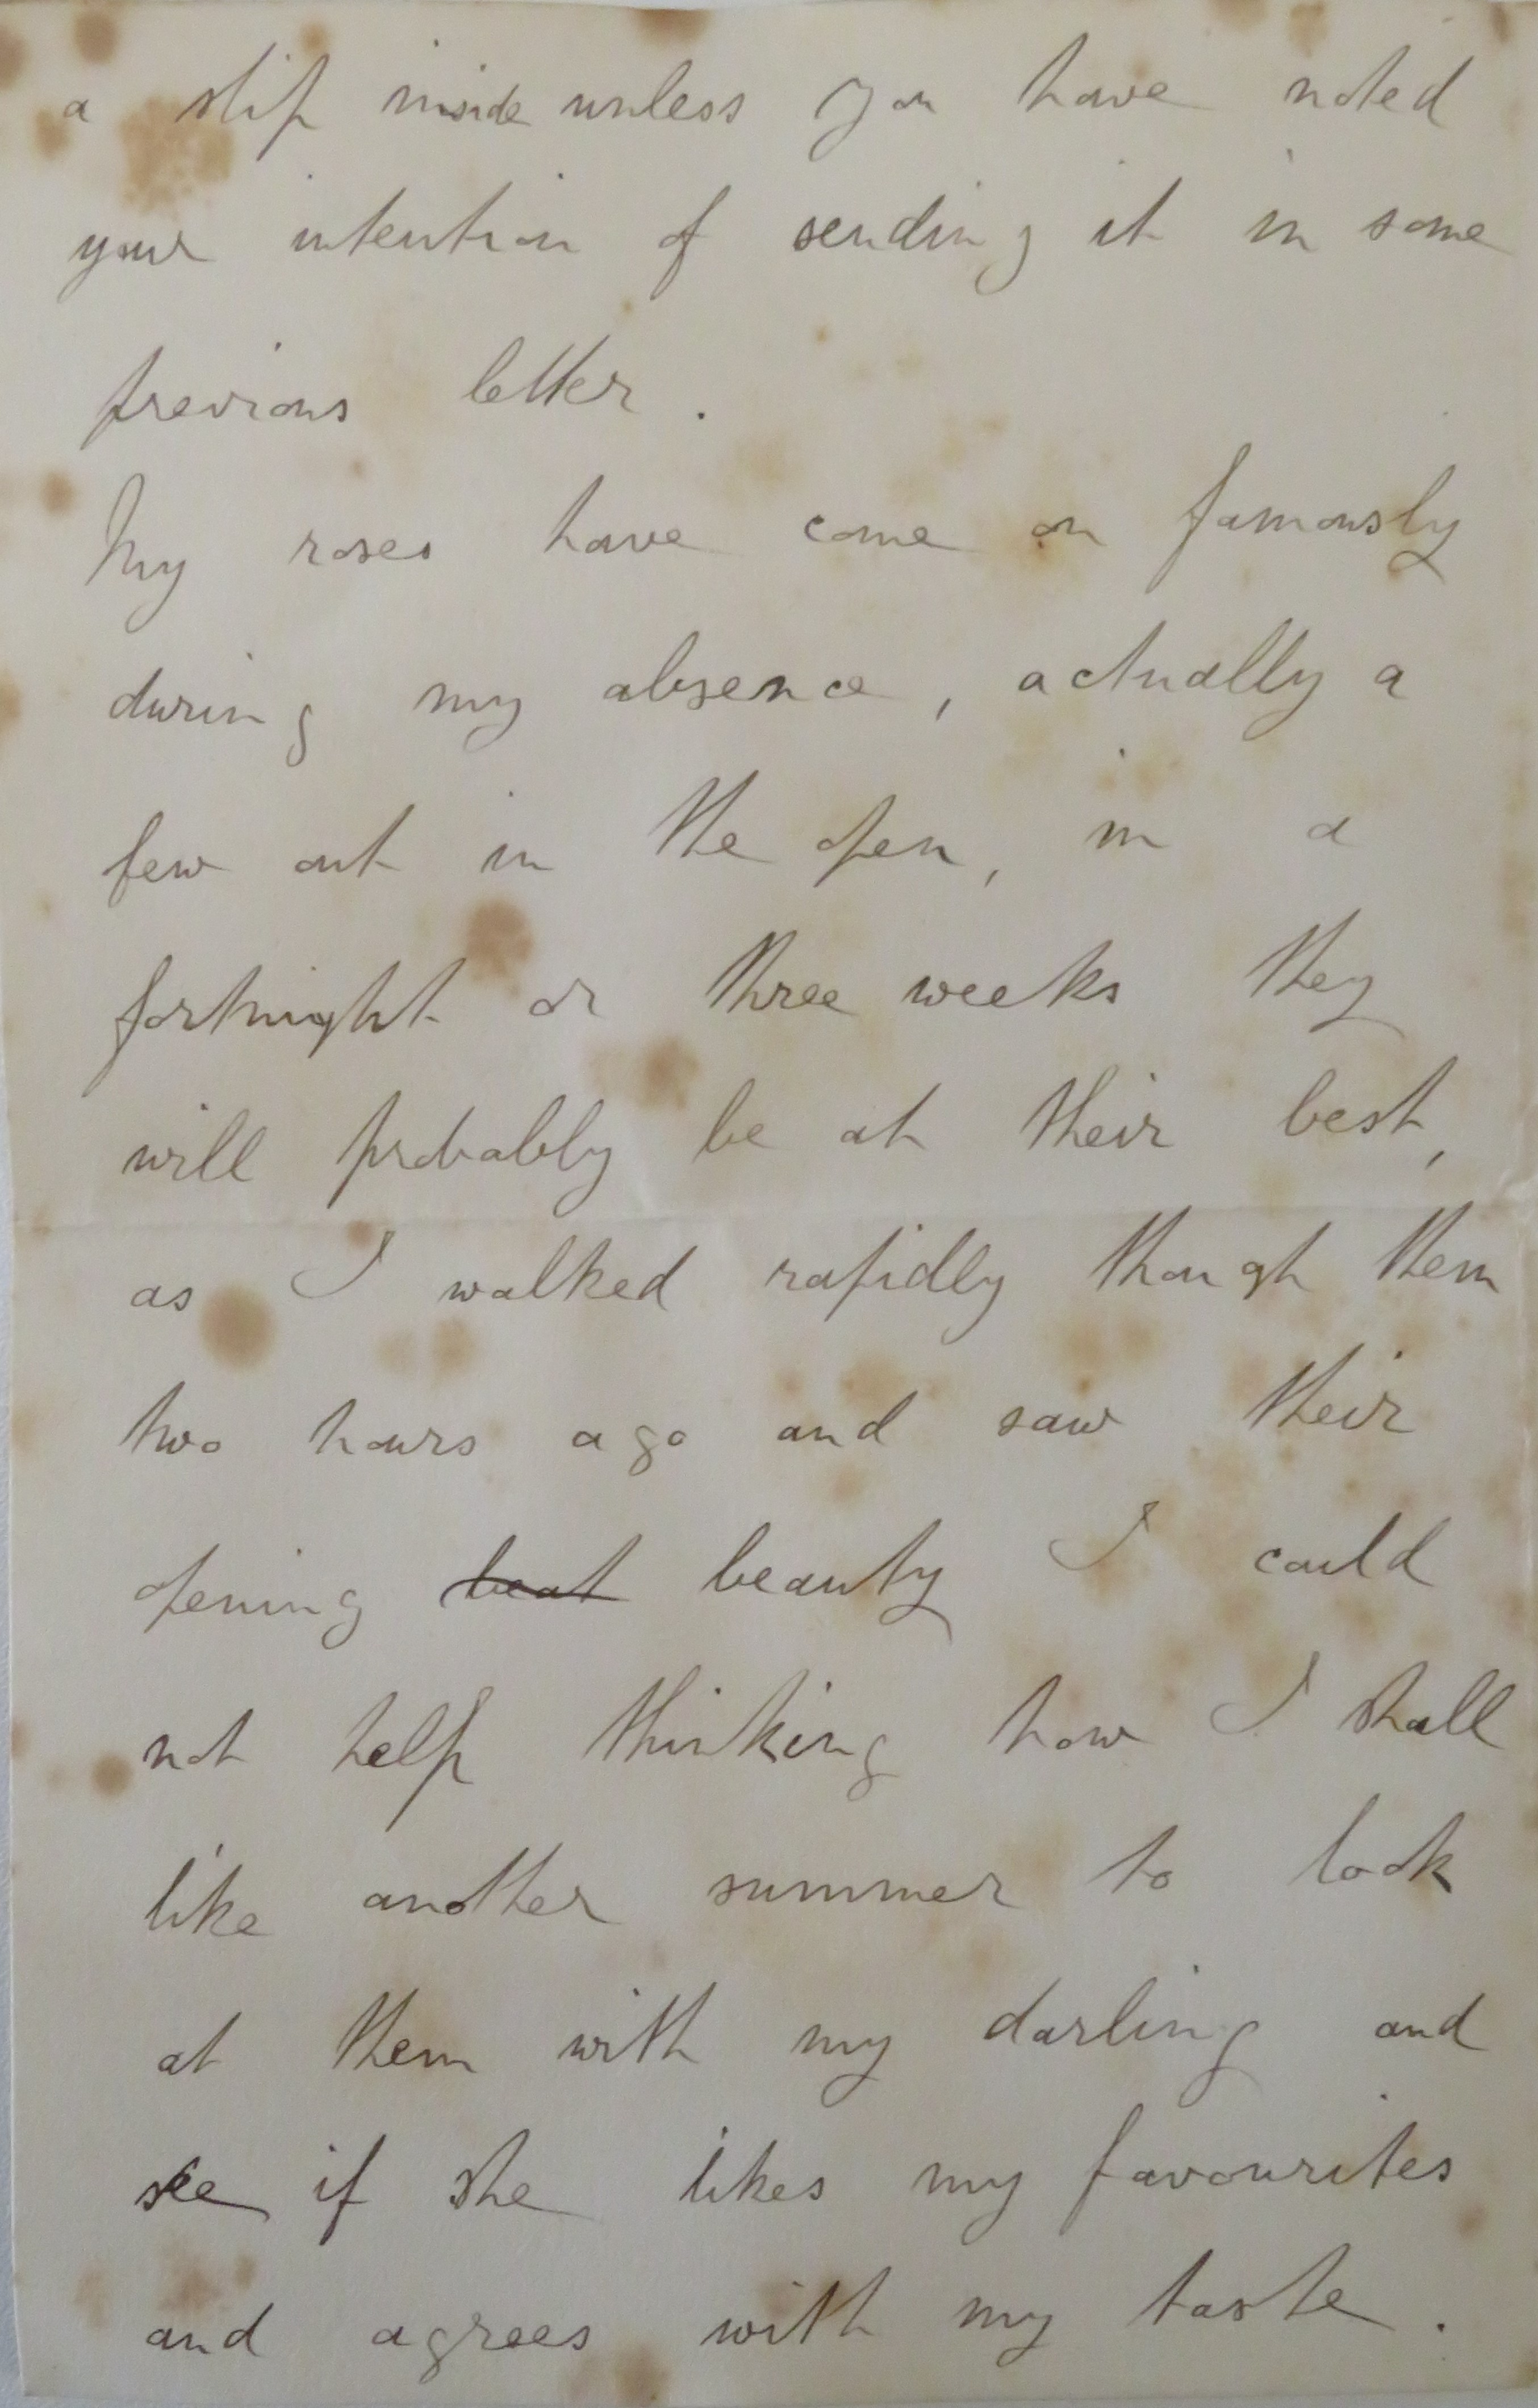 a slip inside unless you have noted
your intention of sending it in some
previous letter.
My roses have come on famously
during my absence, actually a
few out in the open, in a
fortnight or three weeks they
will probably be at their best,
as I walked rapidly though them
two hours ago and saw their
opening beat beauty I could
not help thinking how I shall
like another summer to look
at them with my darling and
see if she likes my favourites
and agrees with my taste.